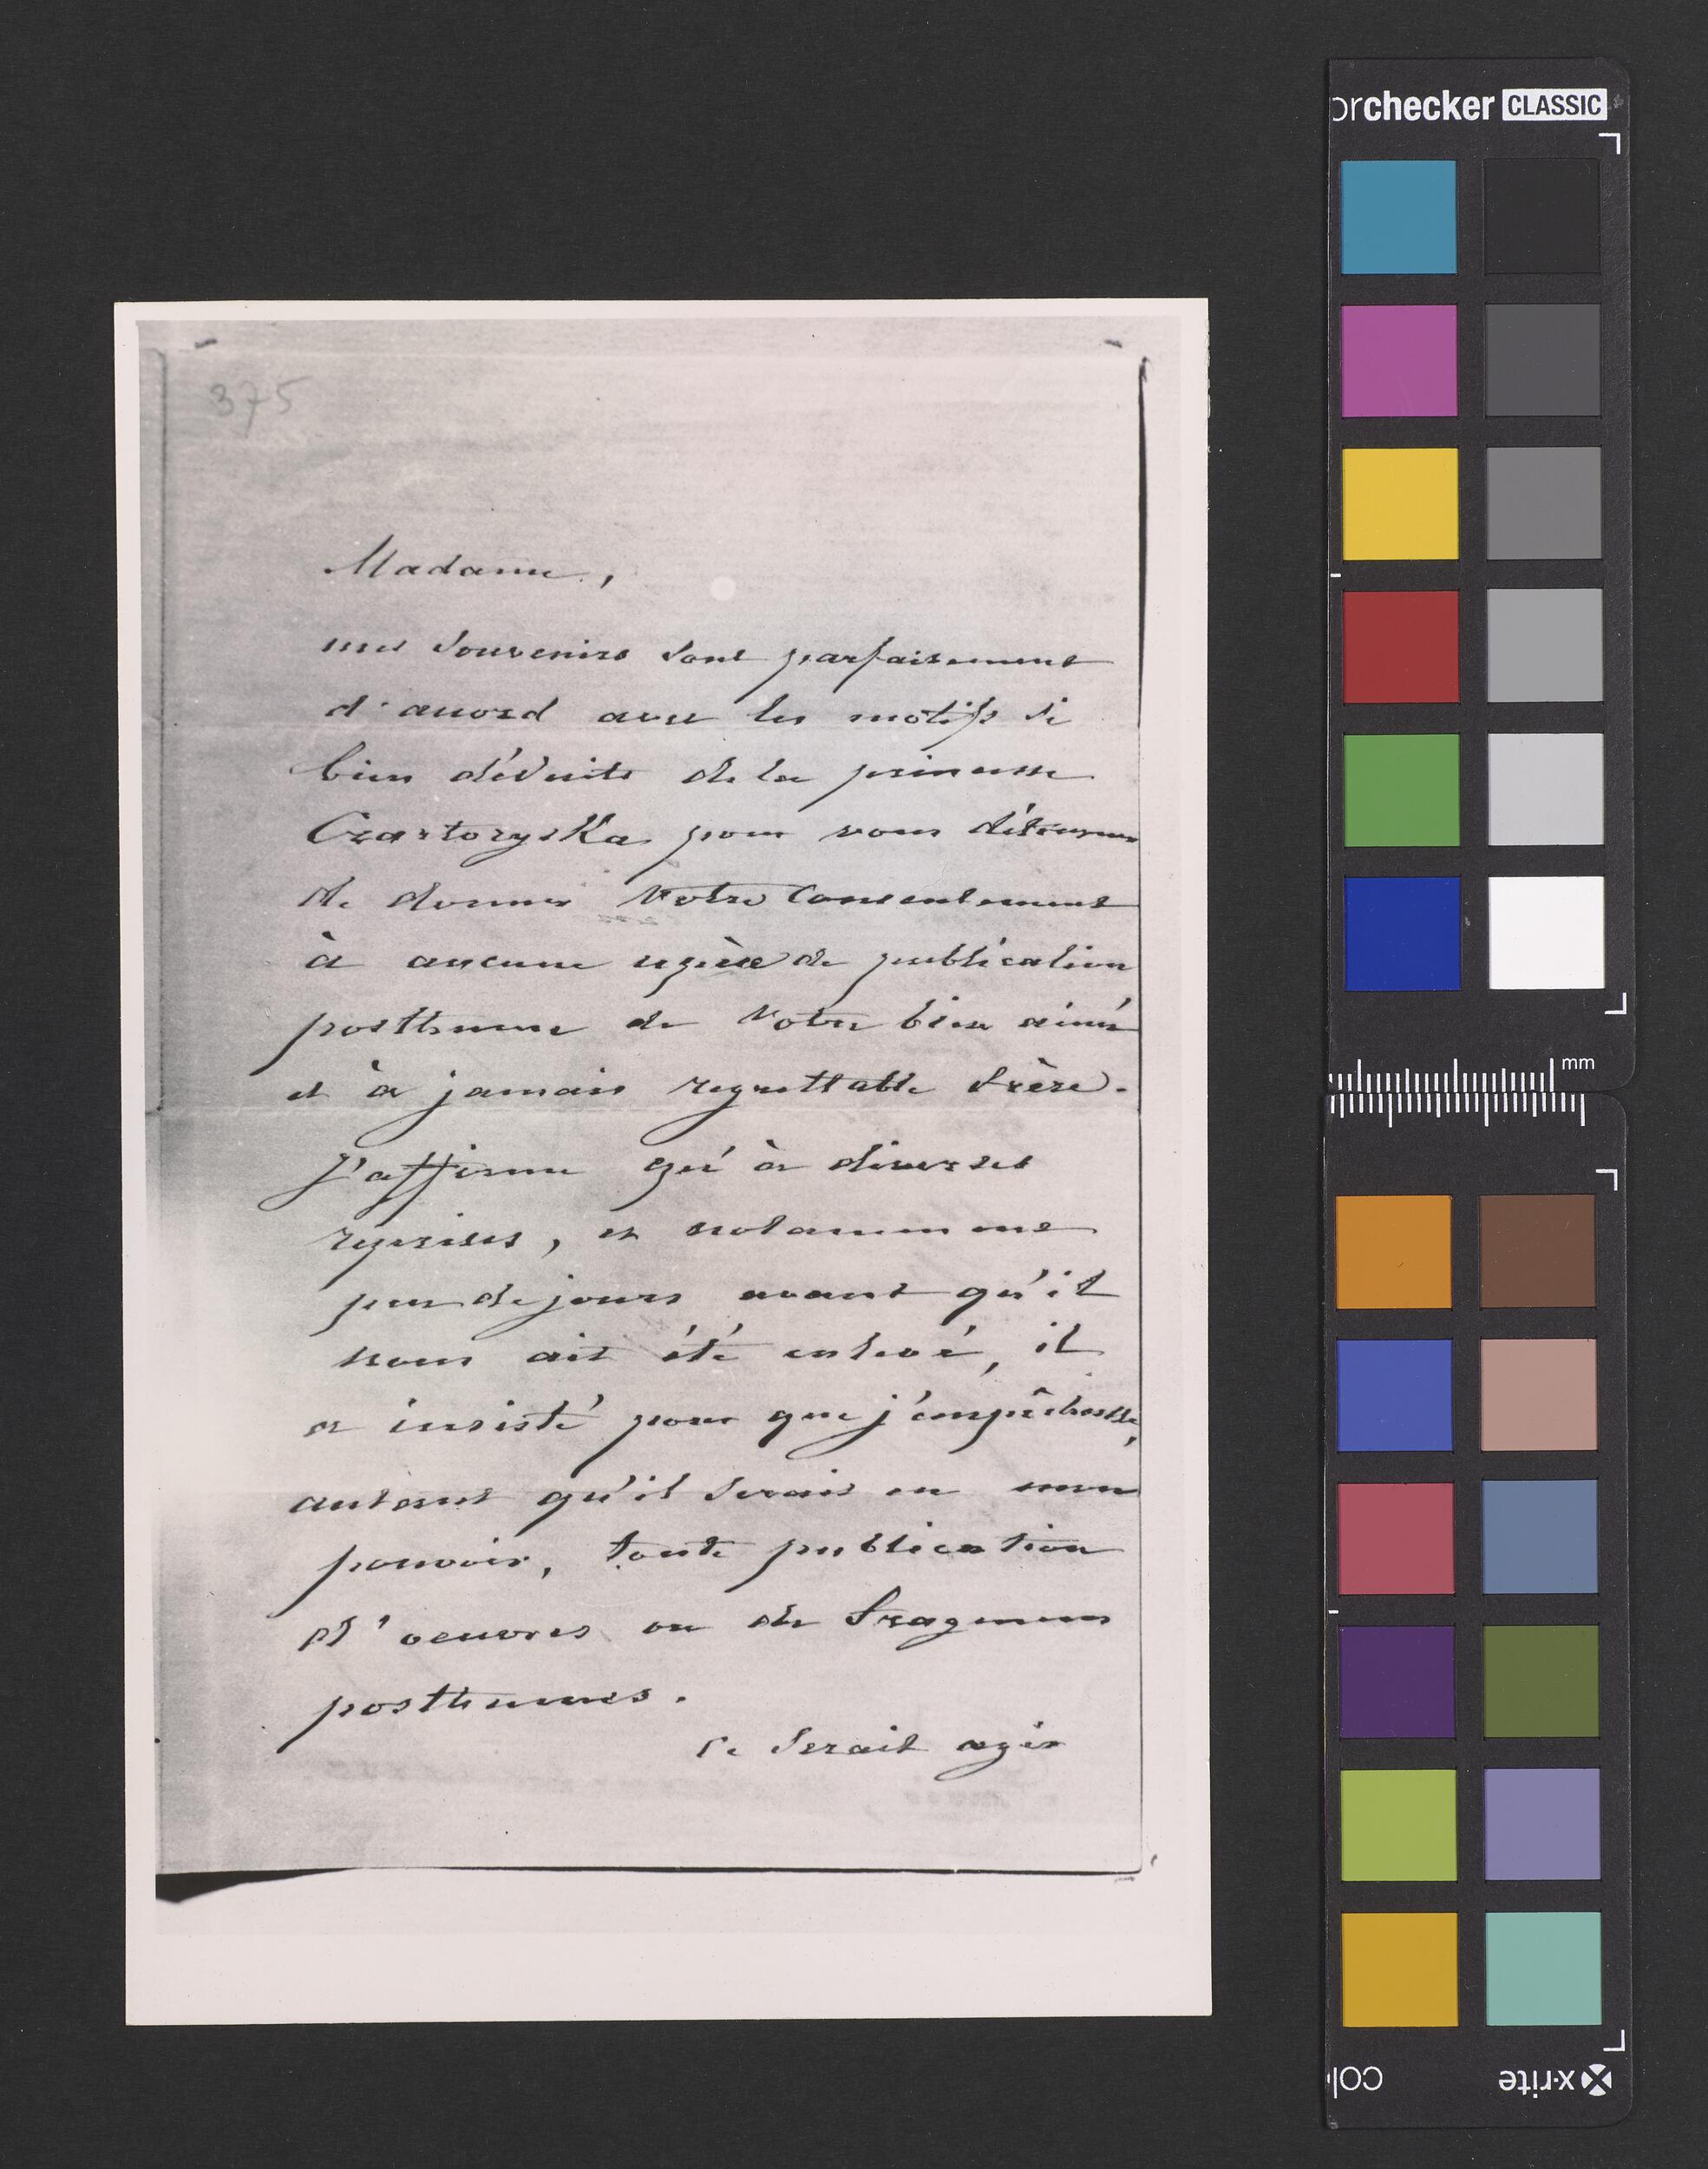 orchecker CLASSIC
375
Madame,
mes souvenirs sont parfaitement
d'accord avec les motifs si
bien déduits de la princesse
Czartoryska pour vous détourner
de donner votre consentement
à aucune espèce de publication
posthume de votre bien aimé
et à jamais regrettable frère.
J'affirme qu'à diverses
reprises, et notamment
peu de jours avant qu'il
nous ait été enlevé, il
a insisté pour que j'empêchasse,
autant qu'il serait en mon
pouvoir, toute publication
d'oeuvres ou de fragmens
posthumes.
Ce serait agir
mm
x-rite
col